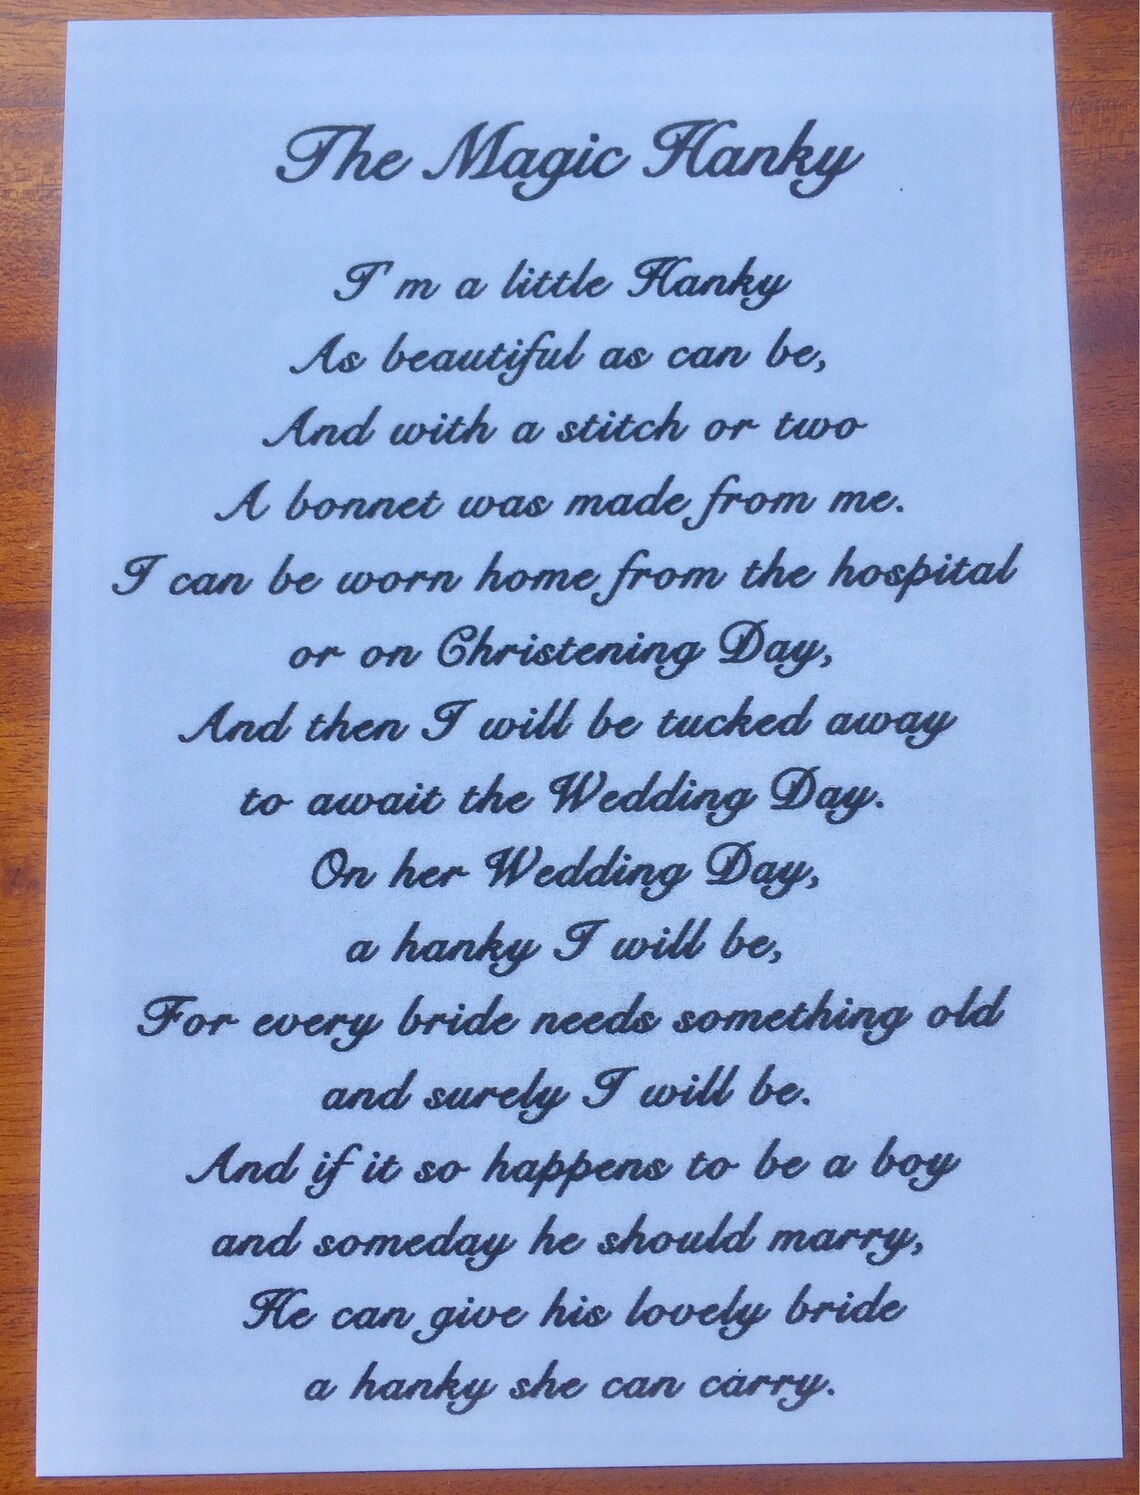 The Magic Hanky
I'm a little Hanky
As beautiful as can be,
And with a stitch or two
A bonnet was made from me.
I can be worn home from the hospital
or on Christening Day,
And then I will be tucked away
to await the Wedding Day.
On her Wedding Day,
a hanky I will be,
For every bride needs something old
and surely I will be.
And if it so happens to be a boy
and someday he should marry,
He can give his lovely bride
a hanky she can carry.